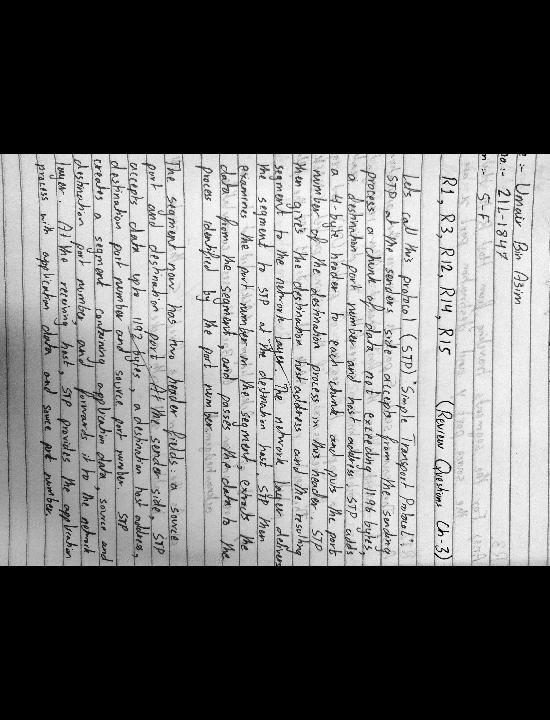 :- Umair Bin Asim
no. :- 21L-1847
n :- 5-F
R1, R3, R12, R14, R15 (Review Questions Ch-3)
Lets call this protocol (STP) Simple Transport Protocol:
STP at the senders side accepts from the sending
process a chunk of data not exceeding 1196 bytes,
a destination port number and host address. STP adds
a 4-byte header to each chunk and puts the port
number of the destination process in this header. STP
then gives the destination host address and the resulting
segment to the network layer. The network layer delivers
the segment to STP at the destination host STP then
examines the port number in the segment, extracts the
data from the segment, and passes the data to the
process identified by the port number.
The segment now has two header fields: a source
port and destination port. At the sender side, STP
accepts data upto 1192 bytes, a destination host address,
destination port number and source port number. STP
creates a segment containing application data, source and
destination port number, and forwards it to the network
layer. At the receiving host, STP provides the application
process with application data and source port number.